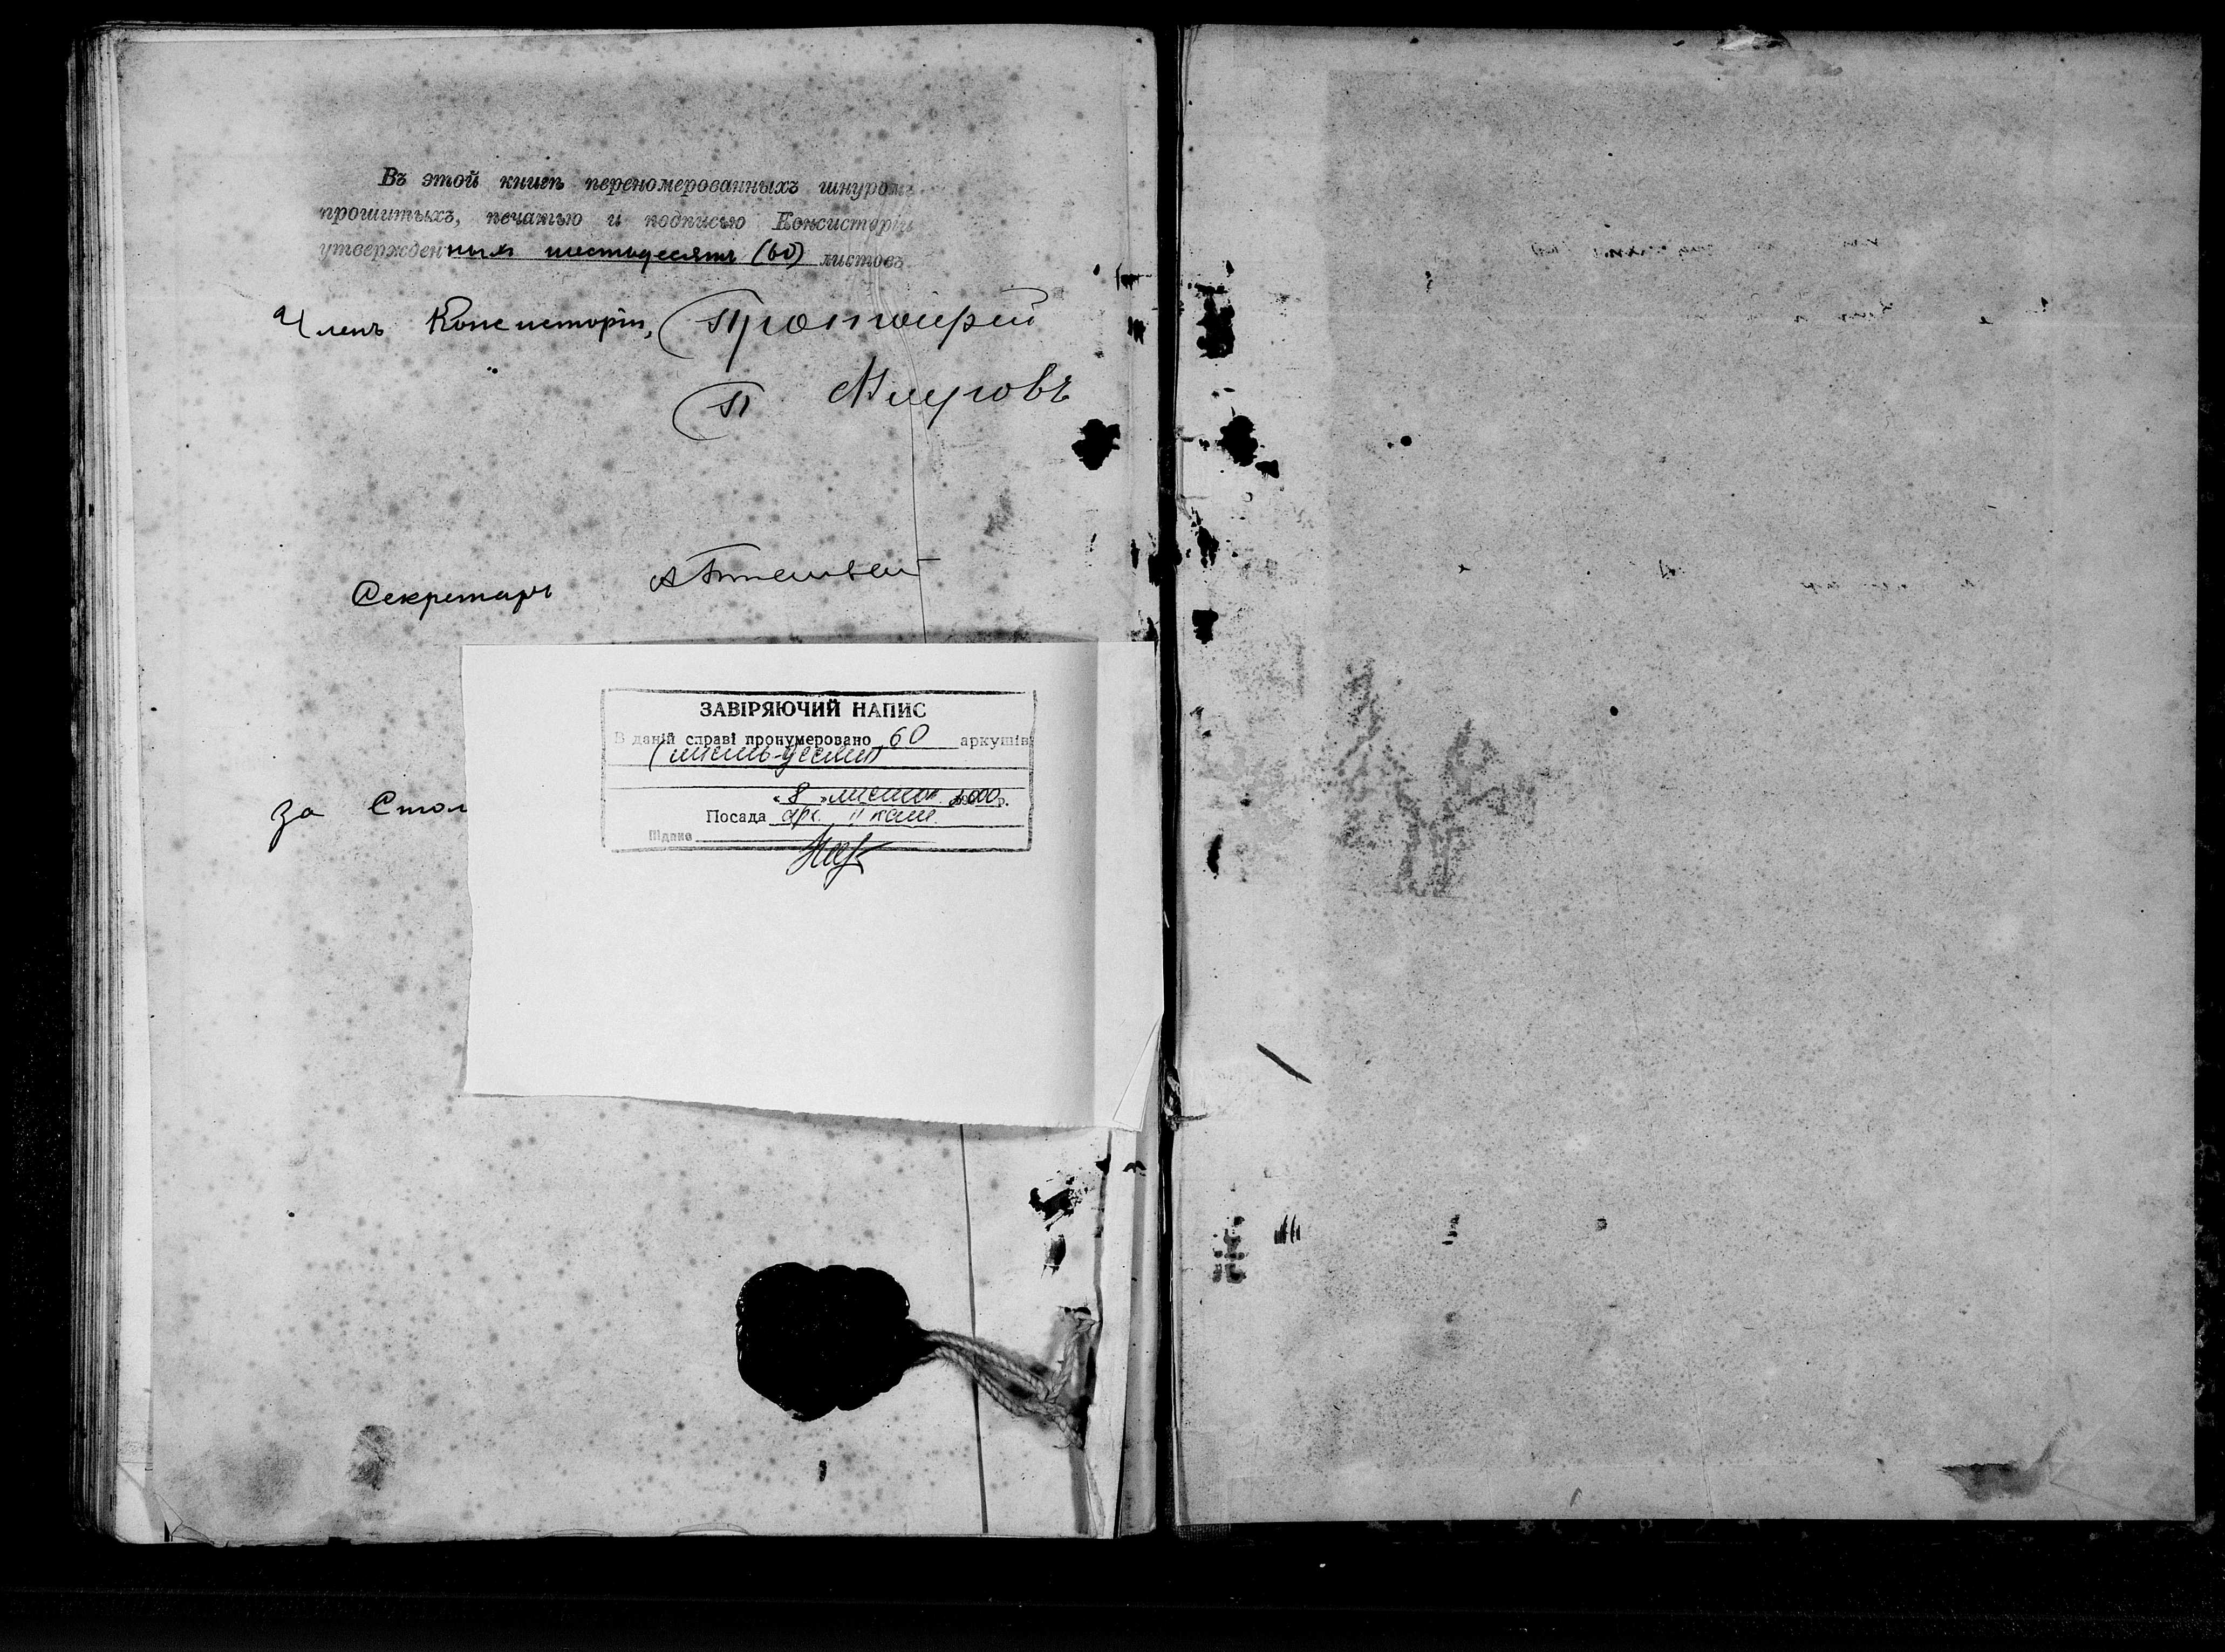 Въ этой книгѣ переномерованныхъ шнуромъ
прошитыхъ, печатью и подписью Консисторіи
утвержденныхъ шестьдесятъ (60) листовъ.
Членъ Консисторіи, Протоіерей
П.
Секретарь
За Стол
ЗАВІРЯЮЧИЙ НАПИС
В даній справі пронумеровано 60 аркушів
(шість-десят)
« 8 » листоп. 2000 р.
Посада арх. II кат.
Підпис